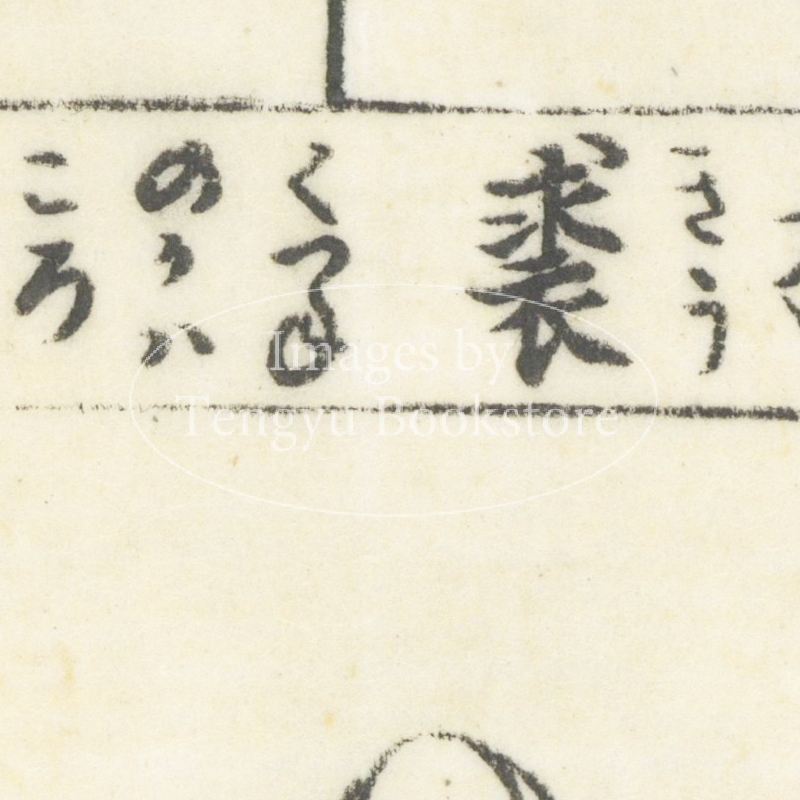 きう
裘
くつね
のかハ
ころ
Images by
Tengyu Bookstore